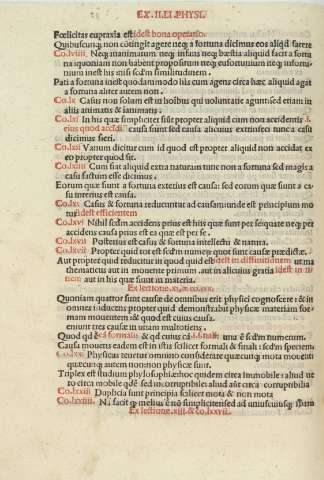 EX .II.LI .PHYSI.
Fœlicitas eupraxia est idest bona operatio.
Quibuscunq; non cotingit agere neq; a fortuna dicimus eos aliqd facere
Co.lviii Neq; inanimatum neq; infans neq; bæstia aliquid facit a fortu
na iquoniam non habent propositum neq; eufortunium neq; infortu-
nium inest his nisi scdm similitudinem.
Pati a fortuna inest quodammodo his cum agens circa hæc aliquid agat
a fortuna aliter autem non.
Co.lx Casus non solum est in hoībus qui voluntatie agunt sed etiam in
aliis animatis & inanimatis
Co.lxi In his quæ simpliciter fiūt propter aliquid cum non accidentis
eius quod accidit causa fuint sed causa alicuius extrinseci tunc a casu
dicimus fieri.
Co.lxii Vanum dicitur cum id quod est propter aliquid non accidat ex
eo propter quod sit.
Co.lxiii Cum fiat aliquid extra naturam tunc non a fortuna sed magis a
casu factum esse dicimus.
Eorum quæ sunt a fortuna exterius est causa: sed eorum quæ sunt a ca-
su interius est causa.
Co.lxv Casus & fortuna reducuntur ad causam unde est principium mo
tus idest efficientem
Co.lxvi Nihil scdm accidens prius est his quæ sunt per se: quare neq; per
accidens causa prius est ea quæ est per se.
Co.lxvii Posterius est casus & fortuna intellectu & natura.
Co.lxvii Propter quid tot est scdm numerum quot sunt causæ prædictæ.
Aut propter quid reducitur in quod quid est idest in diffinitionem ut ma
thematicis aut in mouente primum aut in alicuius gratia idest in fi-
nem aut in his quæ fiunt in materia.
Ex lectione
Quoniam quattor sunt causæ de omnibus erit physici cognoscere: & in
omnes reducens propter quid demonstrabit physice materiam for-
mam mouentem id quod est cuius causa.
eniunt tres causæ in unam multotiens.
Quod qd est causa formalis & qd cuius est una est scdm numerum.
Causa mouens eadem est in istis scilicet formali & finali: scdm speciem.
Co.lxx Physicus tenetur omnino considerare quæcunq; mota mouent:
quæcunq; autem non non physicæ sunt.
Triplex est studium phylosophiæ hoc quidem circa immobile: aliud ue
ro circa mobile quidem sed incorruptibile: aliud autem circa corruptibilia
Co.lxxiii Duplicia sunt principia scilicet mota & non mota
Co.lxxiiii Natura facit quod melius est non simpliciter sed ad uniuscuiusq; substantiam
Ex lectione .xii. & co.lxxvii.